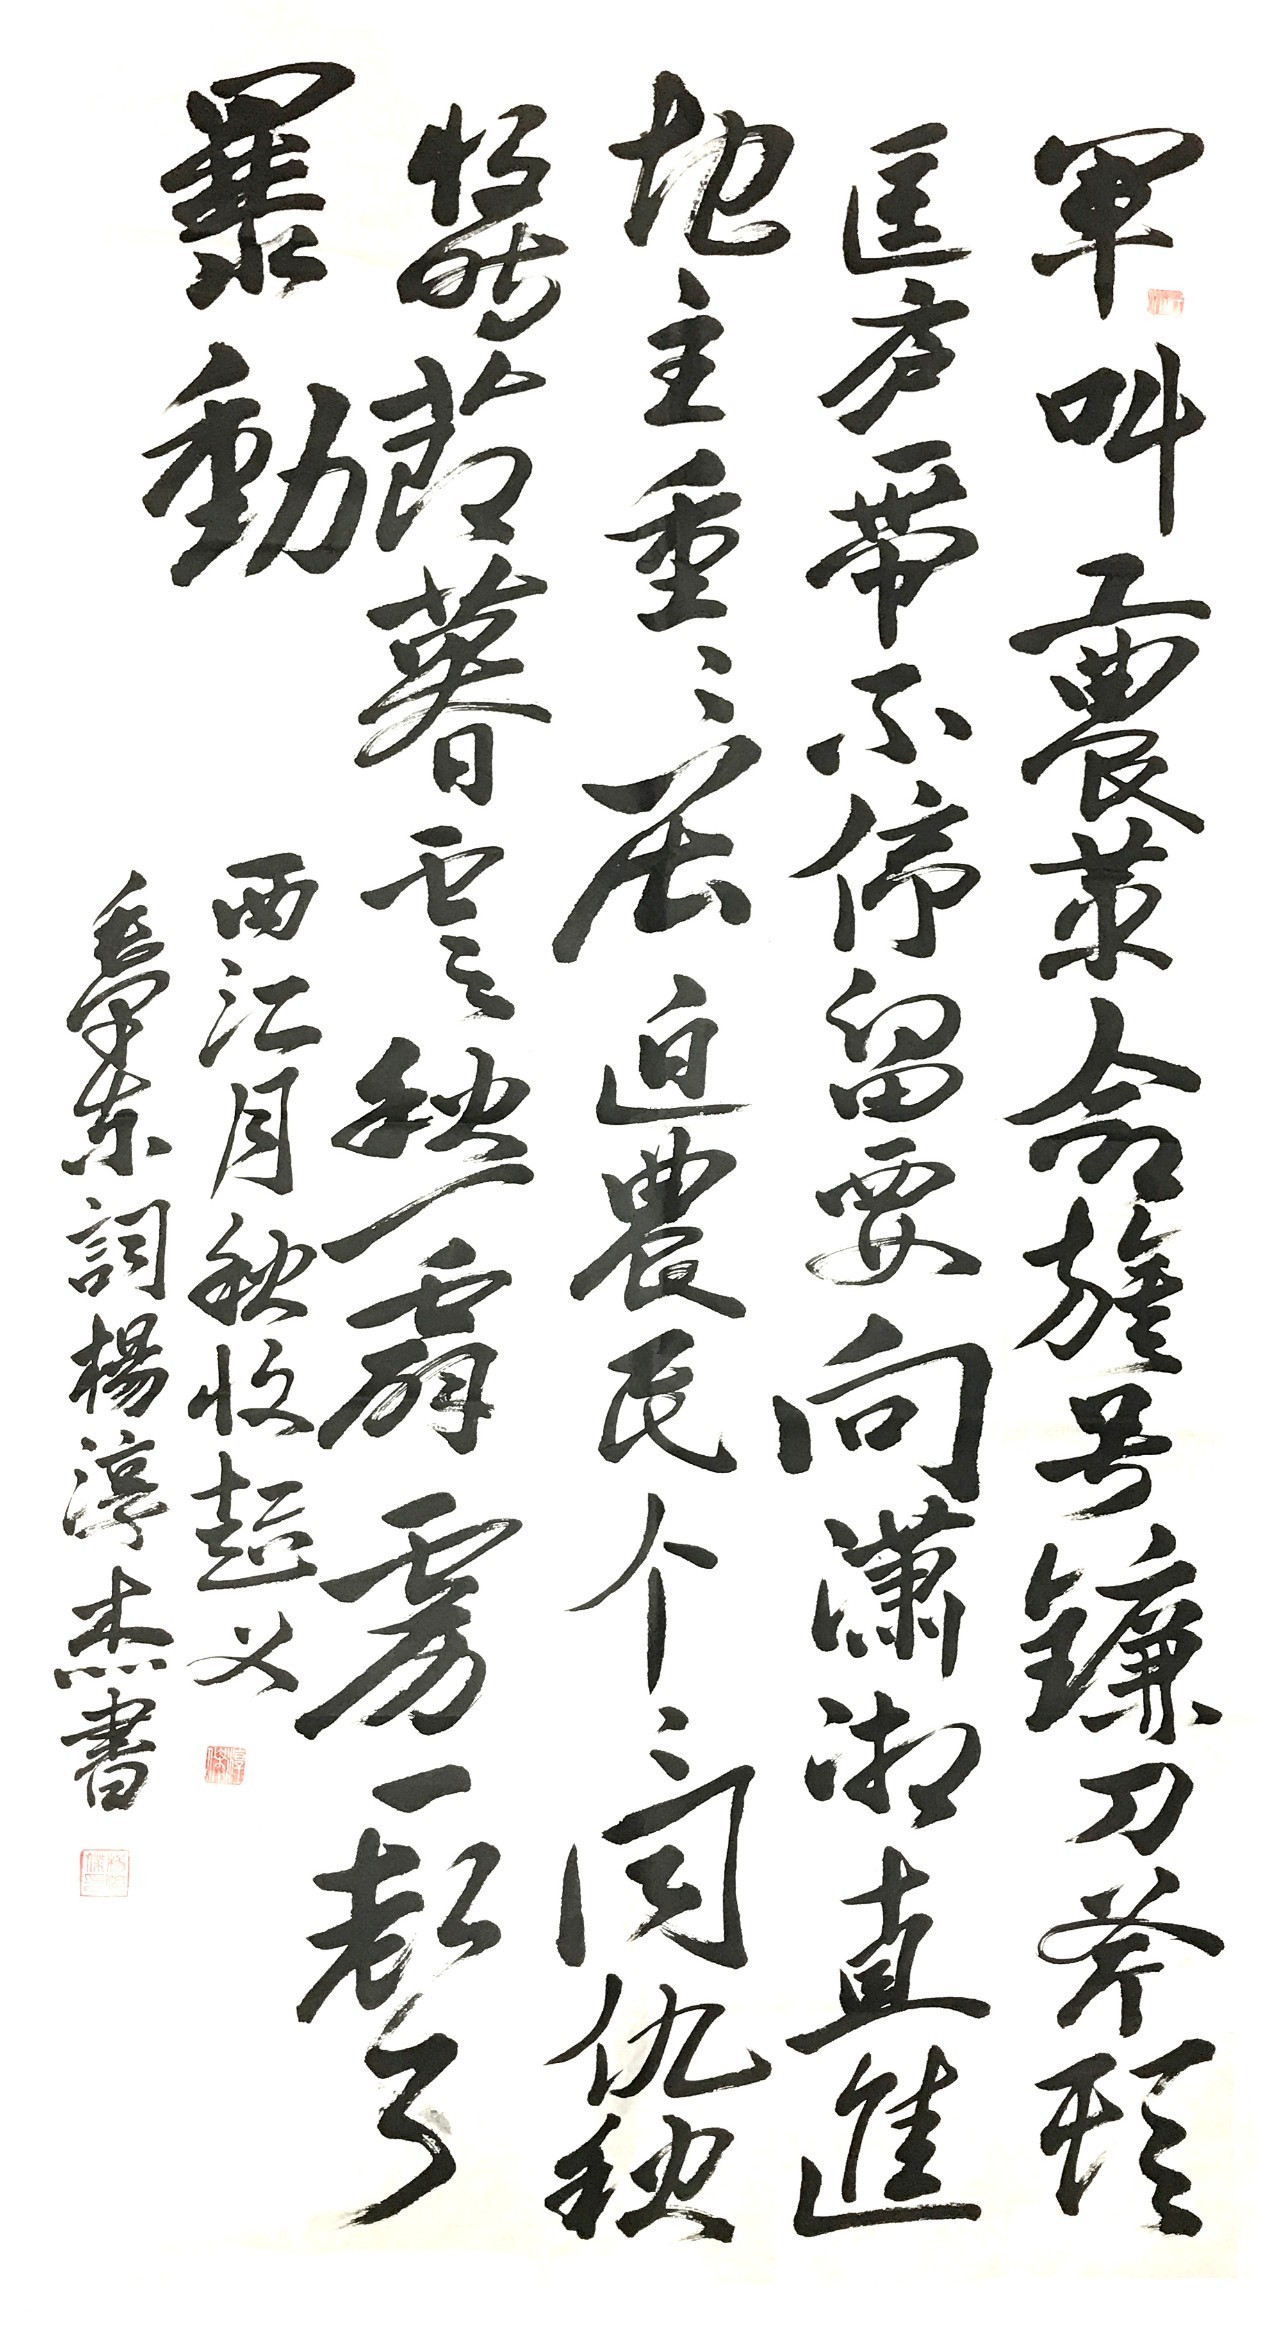 軍叫工農革命旗号鐮刀斧頭
匡庐一帶不停留要向瀟湘直進
地主重々压迫農民个々同仇秋
收時節暮雲愁霹雳一聲
暴動
西江月秋收起义
毛澤东詞楊淳杰書